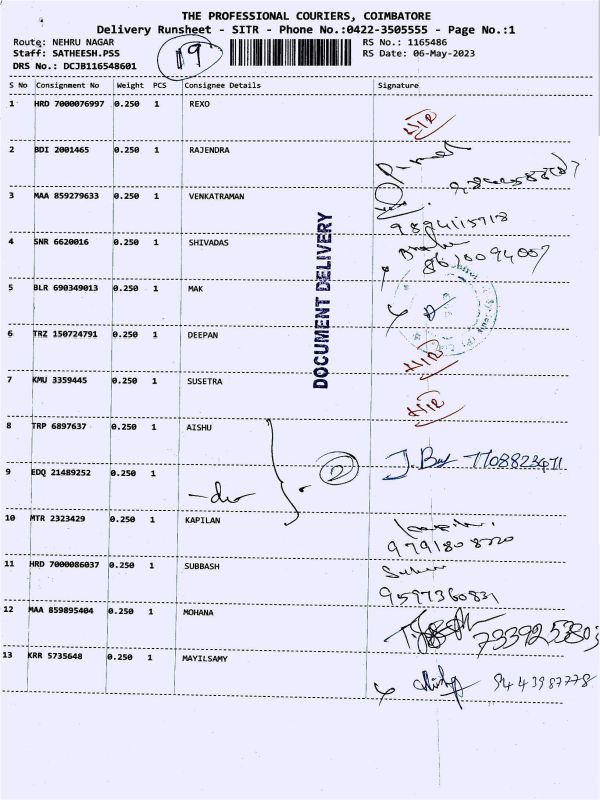 THE PROFESSIONAL COURIERS, COIMBATORE
Delivery Runsheet - SITR - Phone No.:0422-3505555 - Page No.:1
Route: NEHRU NAGAR RS No.: 1165486
Staff: SATHEESH.PSS RS Date: 06-May-2023
DRS No.: DCJB116548601
19
S No Consignment No Weight PCS Consignee Details Signature
1 HRD 7000076997 0.250 1 REXO
2 BDI 2001465 0.250 1 RAJENDRA
3 MAA 859279633 0.250 1 VENKATRAMAN
9894115718
4 SNR 6620016 0.250 1 SHIVADAS
8610094007
DOCUMENT DELIVERY
5 BLR 690349013 0.250 1 MAK
6 TRZ 150724791 0.250 1 DEEPAN
7 KMU 3359445 0.250 1 SUSETRA
8 TRP 6897637 0.250 1 AISHU
7708823471
9 EDQ 21489252 0.250 1
-do
2
10 MTR 2323429 0.250 1 KAPILAN
9791808220
11 HRD 7000086037 0.250 1 SUBBASH
9597360831
12 MAA 859895404 0.250 1 MOHANA
7339253803
13 KRR 5735648 0.250 1 MAYILSAMY
9443987778